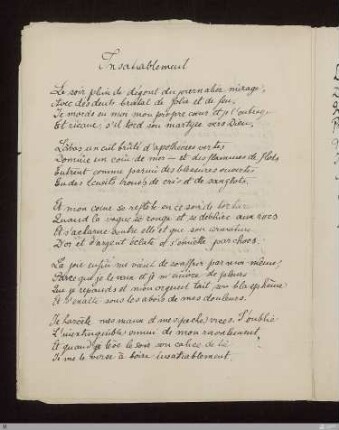 Insatiablement
Le soir, plein de dégoût du journalier mirage,
Avec des dents, brutal, de folie et de feu,
Je mords en moi mon propre cœur et je l'outrage
Et ricane, s'il tord son martyre vers Dieu.
Là-bas, un ciel brûlé d'apothéoses vertes
Domine un coin de mer — et des flammes de flots
Entrent comme parmi des blessures ouvertes
En des écueils troués de cris et de sanglots.
Et mon cœur se reflète en ce soir de torture
Quand la vague se ronge et se déchire aux rocs
Et s'acharne contre elle et que son armature
D'or et d'argent éclate et s'émiette par chocs.
La joie enfin me vient de souffrir par moi-même,
Parce que je le veux et je m'enivre de pleurs
Que je répands et mon orgueil tait son blasphème
Et s'exalte sous les abois de mes douleurs.
Je harcèle mes maux et mes vices. J'oublie
L'inextinguible ennui de mon
Et quand lève le soir son calice de lie
Je me le verse à boire insatiablement.